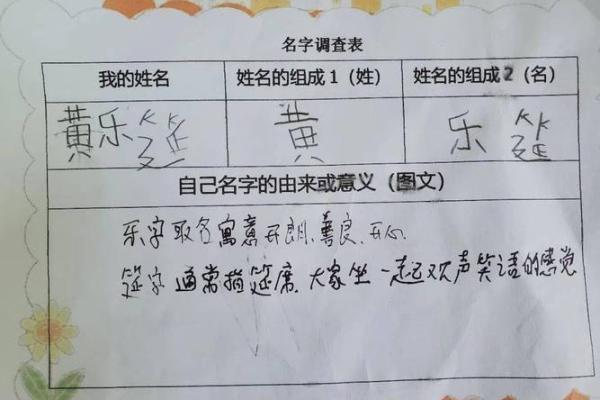 名字调查表
我的姓名 姓名的组成1（姓） 姓名的组成2（名）
黄乐筵 黄 乐筵
自己名字的由来或意义（图文）
乐字取名寓意开朗、善良、开心.
筵字通常指筵席.大家坐一起欢声笑语的感觉